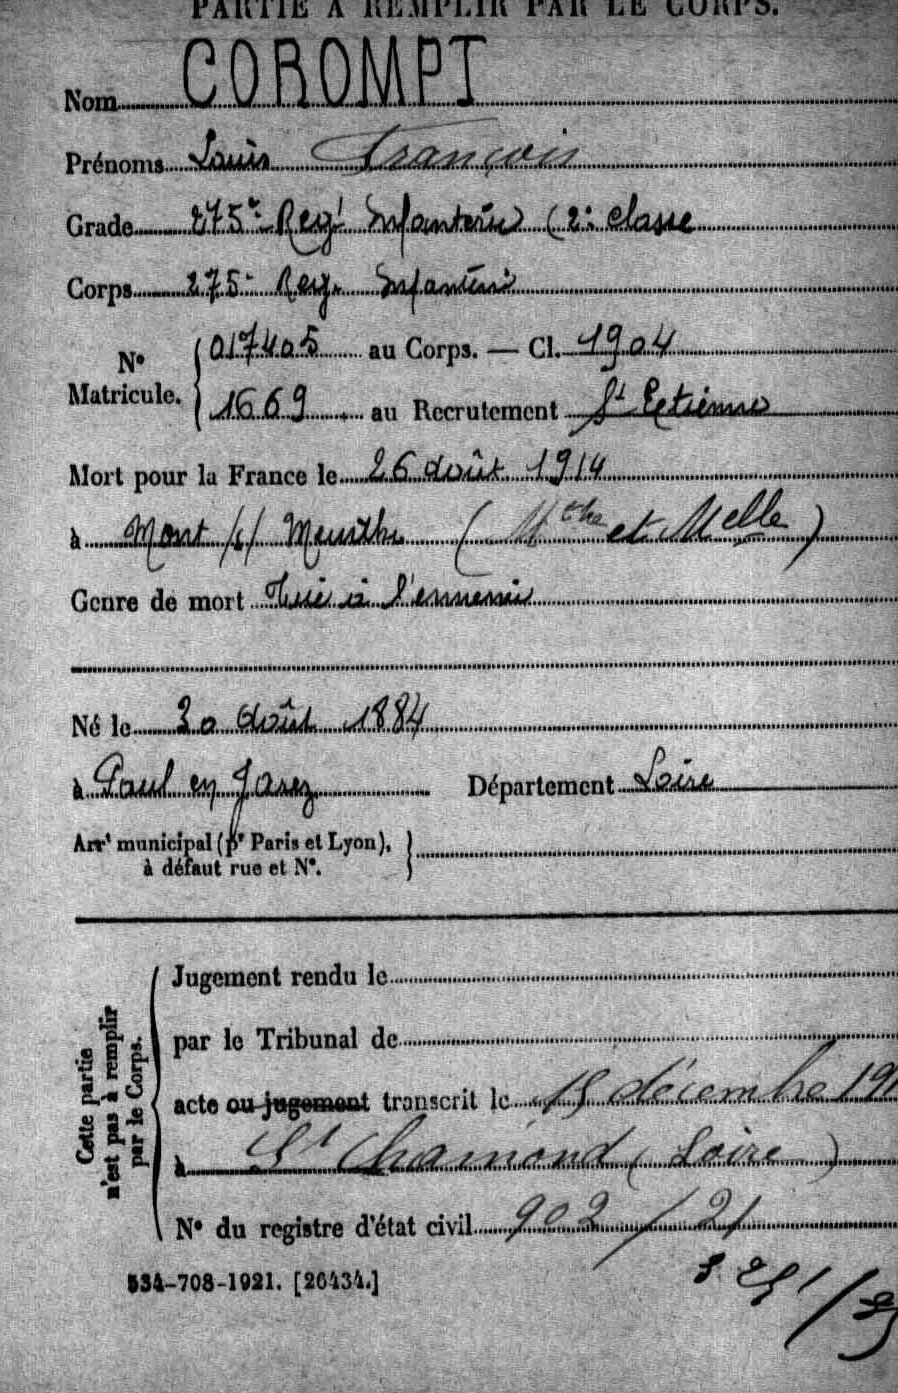 PARTIE À REMPLIR PAR LE CORPS.
Nom COROMPT
Prénoms Louis François
Grade 275e Regt Infanterie (2e classe
Corps 275e Reg. Infanterie
N° Matricule. 017405 au Corps. — Cl. 1904
1669 au Recrutement St Etienne
Mort pour la France le 26 août 1914
à Mont /s/ Meurthe (Mthe et Melle)
Genre de mort Tué à l'ennemi
Né le 30 août 1884
à Paul en Jarez Département Loire
Arrt municipal (pr Paris et Lyon),
à défaut rue et N°.
Cette partie
n'est pas à remplir
par le Corps.
Jugement rendu le
par le Tribunal de
acte ou jugement transcrit le 15 décembre 191
à St Chamond (Loire)
N° du registre d'état civil 902 / 21
534-708-1921. [26434.]